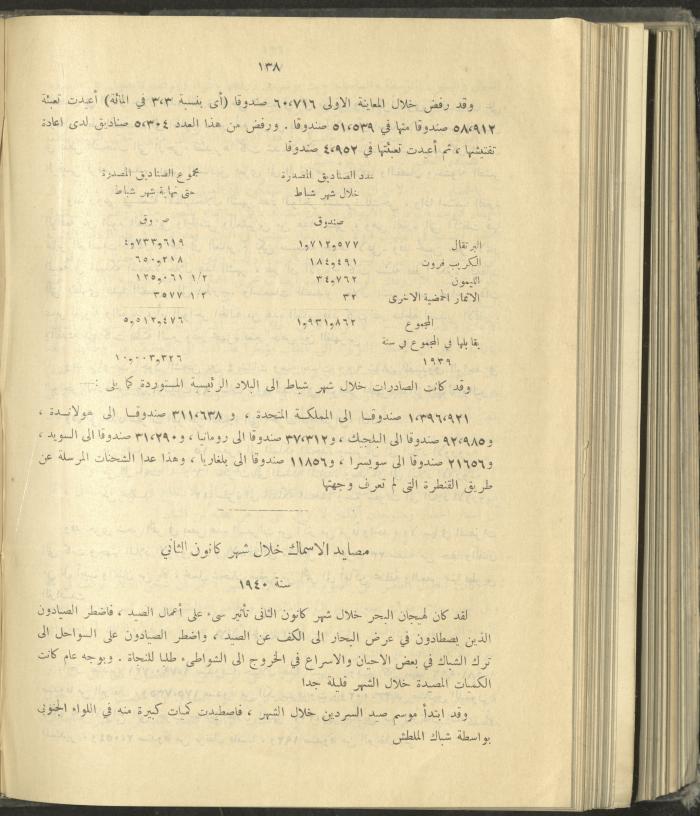 ١٣٨
وقد رفض خلال المعاينة الاولى ٦٠،٧١٦ صندوقا (أى بنسبة ٣،٣ في المائة) أعيدت تعبئة
٥٨،٩١٢ صندوقا منها في ٥١،٥٣٩ صندوقا . ورفض من هذا العدد ٥،٣٠٤ صناديق لدى اعادة
تفتيشها ، ثم أعيدت تعبئتها في ٤،٩٥٢ صندوقا
عدد الصناديق المصدرة مجموع الصناديق المصدرة
خلال شهر شباط حتى نهاية شهر شباط
صندوق صندوق
البرتقال ١و٧١٢و٥٧٧ ٤و٧٣٣و٦١٩
الكريب فروت ١٨٤و٤٩١ ٦٥٠و٢١٨
الليمون ٣٤و٧٦٢ ١/٢ ١٢٥و٠٦١
الاثمار الحمضية الاخرى ٣٢ ١/٢ ٣٥٧٧
المجموع ١و٩٣١و٨٦٢ ٥و٥١٢و٤٧٦
يقابلها في المجموع في سنة
١٩٣٩ ١٠و٠٠٣و٣٢٦
وقد كانت الصادرات خلال شهر شباط الى البلاد الرئيسية المستوردة كما يلى :—
١،٣٩٦،٩٢١ صندوقا الى المملكة المتحدة ، و ٣١١،٦٣٨ صندوقا الى هولاندة ،
و٩٢،٩٨٥ صندوقا الى البلجيك ، و٣٧،٣١٢ صندوقا الى رومانيا ، و٣١،٢٩٠ صندوقا الى السويد ،
و٢١٦٥٦ صندوقا الى سويسرا ، و١١٨٥٦ صندوقا الى بلغاريا ، وهذا عدا الشحنات المرسلة عن
طريق القنطرة التى لم تعرف وجهتها
مصايد الاسماك خلال شهر كانون الثاني
سنة ١٩٤٠
لقد كان لهيجان البحر خلال شهر كانون الثانى تأثير سىء على أعمال الصيد ، فاضطر الصيادون
الذين يصطادون في عرض البحار الى الكف عن الصيد ، واضطر الصيادون على السواحل الى
ترك الشباك في بعض الاحيان والاسراع في الخروج الى الشواطىء طلبا للنجاة . وبوجه عام كانت
الكميات المصدة خلال الشهر قليلة جدا
وقد ابتدأ موسم صيد السردين خلال الشهر ، فاصطيدت كميات كبيرة منه في اللواء الجنوبي
بواسطة شباك الملطش